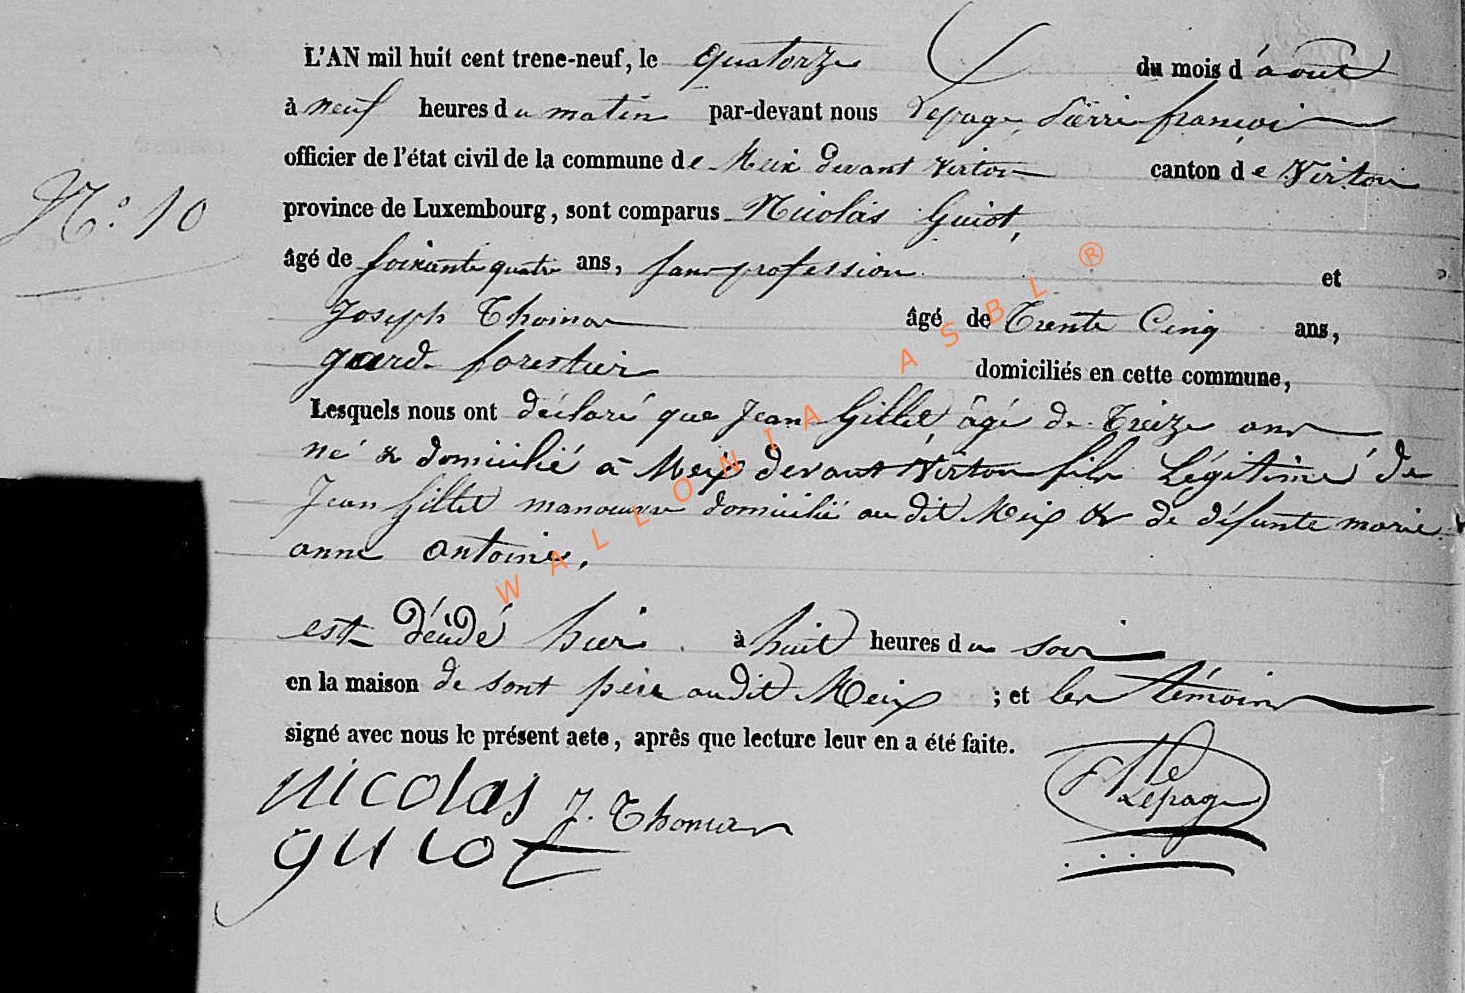 L'AN mil huit cent trene-neuf, le quatorze du mois d'août
à neuf heures du matin par-devant nous Lepage Pierre françois
officier de l'état civil de la commune de Meix devant virton canton de Virton
N.° 10
province de Luxembourg, sont comparus Nicolas Guiot,
âgé de soixante quatre ans, sans profession et
Joseph Thomas âgé de Trente Cinq ans,
garde forestier domiciliés en cette commune,
Lesquels nous ont déclaré que Jean Gillet, âgé de Treize ans
né & domicilié à Meix devant Virton fils Légitime de
Jean Gillet manoeuvre domicilié au dit Meix & de défunte marie
anne antoine,
est décédé hier à huit heures du soir
en la maison de sont père au dit Meix ; et les témoins
signé avec nous le présent acte, après que lecture leur en a été faite.
nicolas J. Thomas
guiot
Lepage
WALLONIA ASBL ®